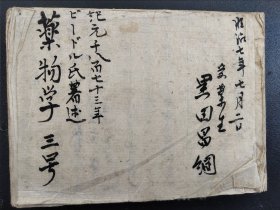 明治七年七月二日
黒田昌綱
紀元千八百七十三年
ビードル氏著述
薬物学 三号